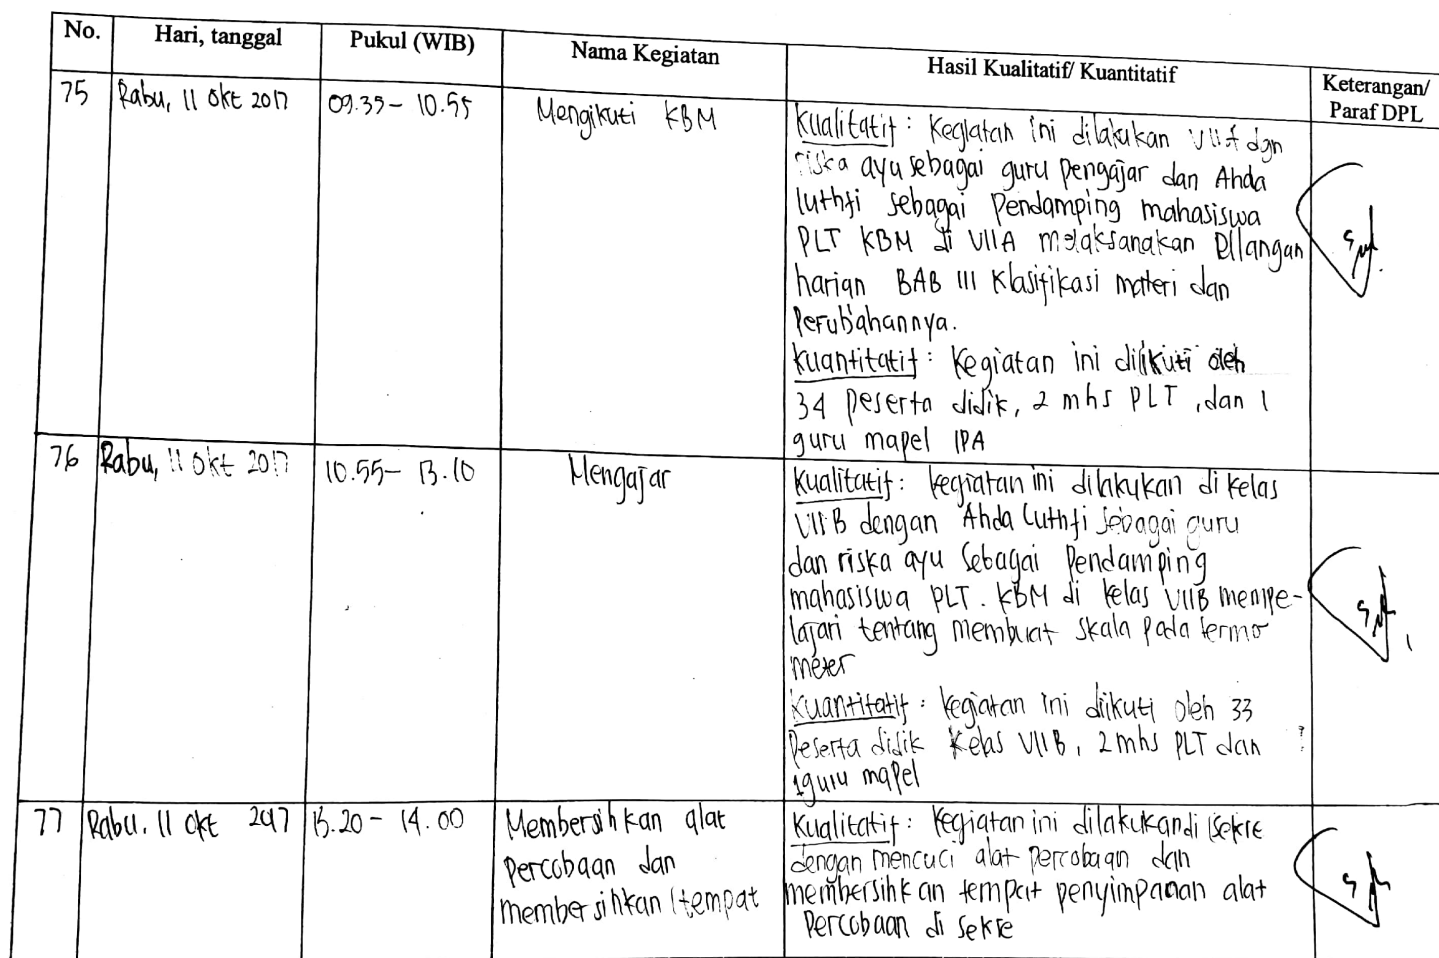 No. Hari, tanggal Pukul (WIB) Nama Kegiatan Hasil Kualitatif/ Kuantitatif Keterangan/
Paraf DPL
75 Rabu, 11 Okt 2017 09.35 - 10.55 Mengikuti KBM
Kualitatif : Kegiatan ini dilakukan VIIA dgn
riska ayu sebagai guru pengajar dan Ahda
luthfi sebagai Pendamping mahasiswa
PLT KBM di VIIA melaksanakan Ulangan
harian BAB III Klasifikasi materi dan
Perubahannya.
Kuantitatif : Kegiatan ini diikuti oleh
34 Peserta didik, 2 mhs PLT , dan 1
guru mapel IPA
76 Rabu, 11 Okt 2017 10.55 - 13.10 Mengajar
Kualitatif : kegiatan ini dilakukan di kelas
VIIB dengan Ahda Luthfi sebagai guru
dan riska ayu Sebagai Pendamping
mahasiswa PLT. KBM di kelas VIIB mempe-
lajari tentang membuat skala pada termo
meter
Kuantitatif : kegiatan ini diikuti oleh 33
Peserta didik Kelas VIIB, 2 mhs PLT dan
1 guru mapel
77 Rabu, 11 Okt 2017 13.20 - 14.00
Membersihkan alat
Percobaan dan
membersihkan tempat
Kualitatif : Kegiatan ini dilakukan di sekre
dengan mencuci alat percobaan dan
membersihkan tempat penyimpanan alat
Percobaan di sekre